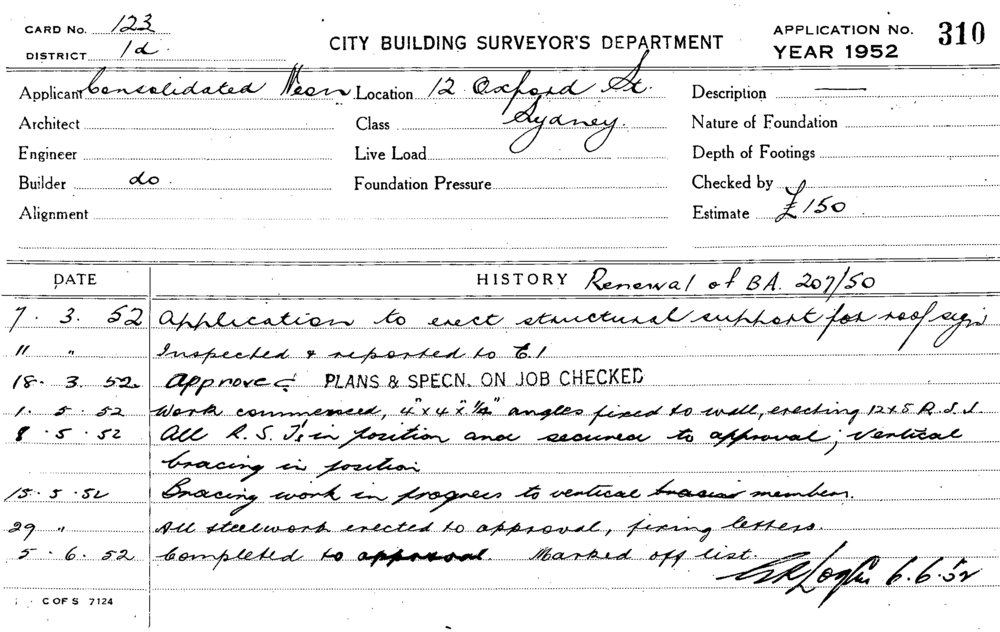 CARD No. 123
DISTRICT 1d.
CITY BUILDING SURVEYOR'S DEPARTMENT
APPLICATION No. 310
YEAR 1952
Applicant Consolidated Neon Location 12 Oxford St. Description —
Architect Class Sydney. Nature of Foundation
Engineer Live Load Depth of Footings
Builder do. Foundation Pressure Checked by
Alignment Estimate £150
DATE HISTORY Renewal of BA. 207/50
7. 3. 52 Application to erect structural support for roof sign
11 " Inspected & reported to E.1
18. 3. 52. Approved PLANS & SPECN. ON JOB CHECKED
1. 5. 52 Work commenced, 4" x 4" x 1/4" angles fixed to wall, erecting 12x5 R.S.J.
8. 5. 52 All R.S.J's in position and secured to approval; vertical
bracing in position
15. 5. 52 Bracing work in progress to vertical members.
29 " All steelwork erected to approval, fixing letters.
5. 6. 52 Completed to approval. Marked off list.
6.6.52
C OF S 7124